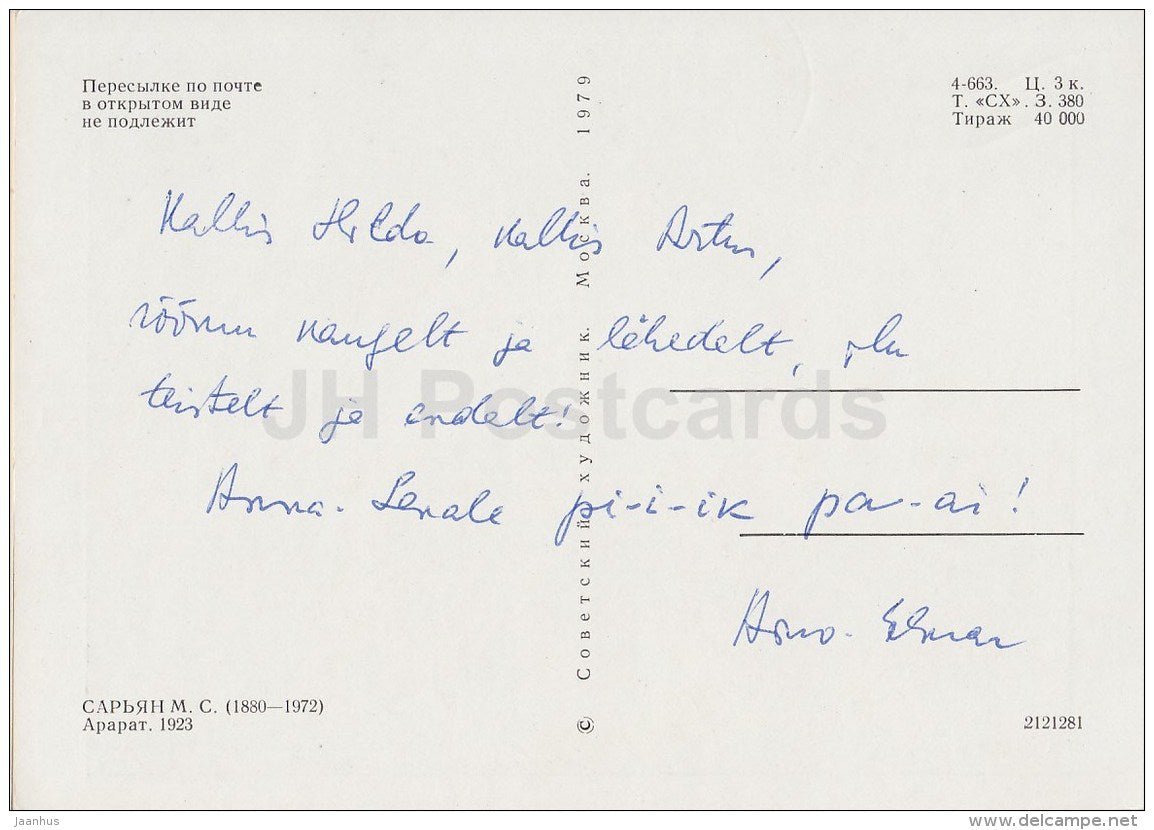 Пересылке по почте
в открытом виде
не подлежит
4-663. Ц. 3 к.
Т. «СХ». З. 380
Тираж 40 000
Kallis Hilda, kallis Artur,
rõõmu kaugelt ja lähedalt, ilu
teistelt ja endalt!
Anna-Lenale pi-i-ik pa-ai!
Arno-Elmar
Советский художник. Москва. 1979
©
САРЬЯН М. С. (1880—1972)
Арарат. 1923
2121281
JH Postcards
Jaanhus
www.delcampe.net